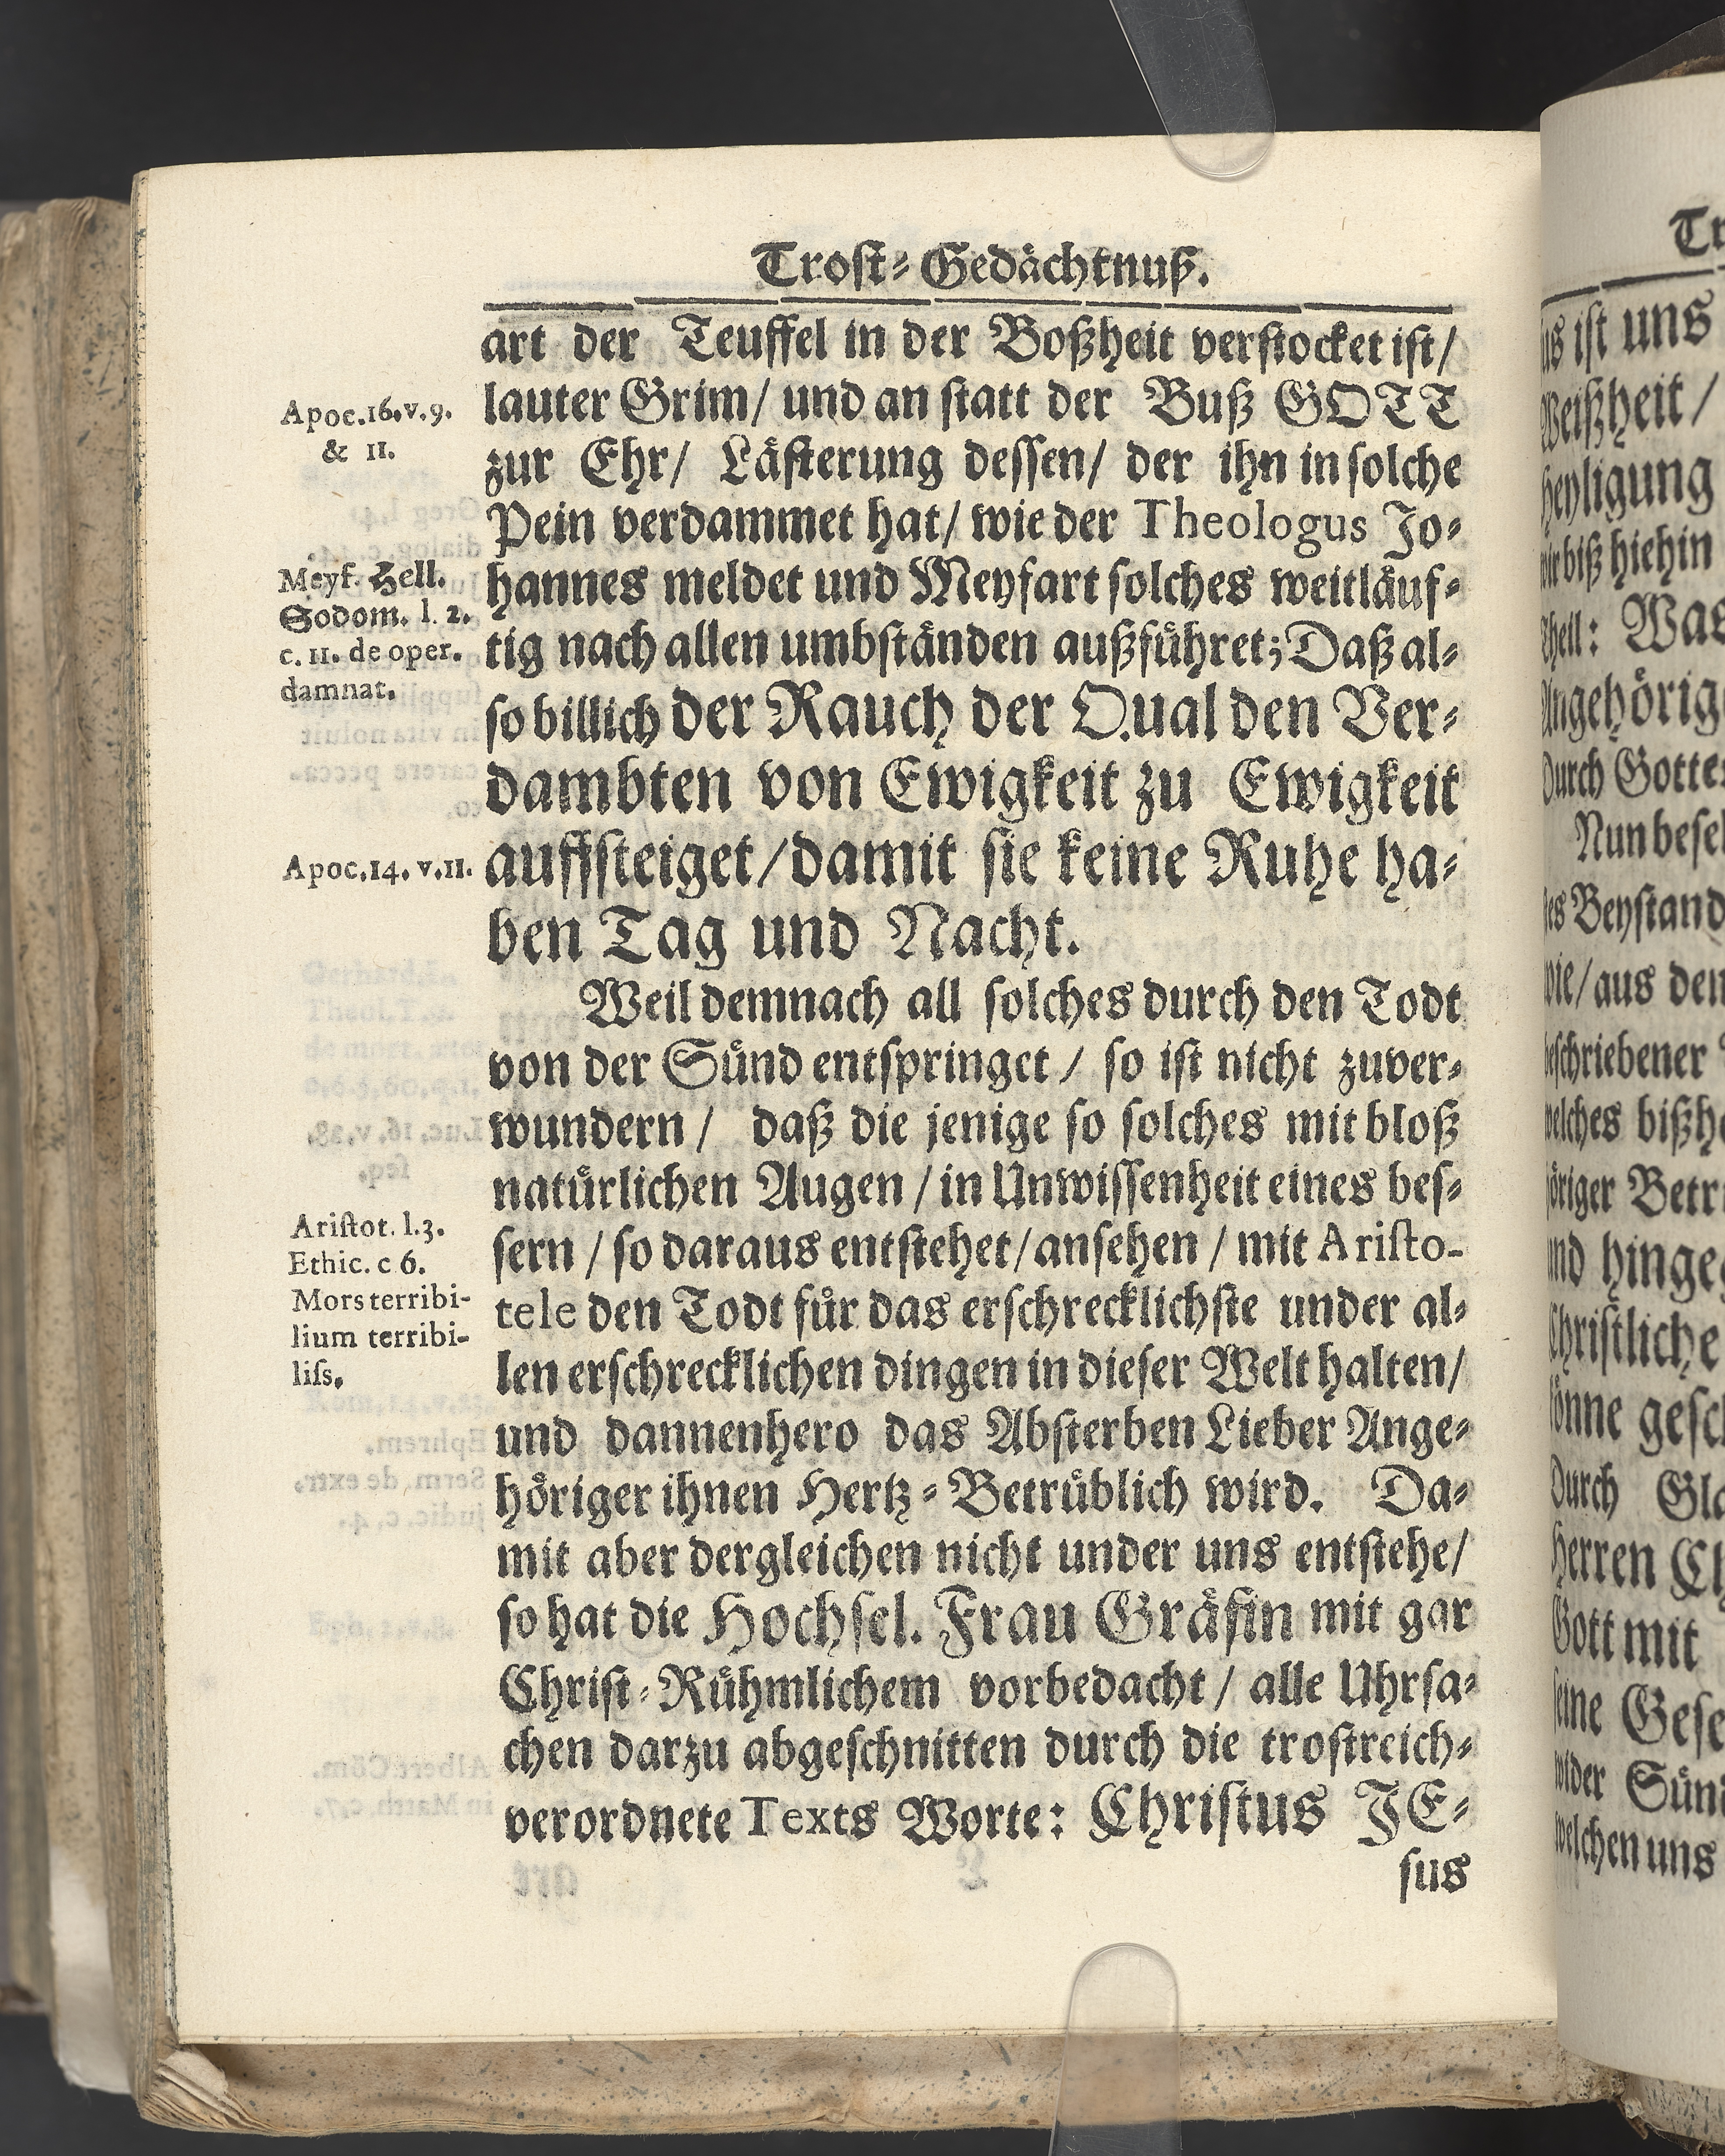 Trost-Gedächtnuß.
art der Teuffel in der Boßheit verstocket ist/
lauter Grim/ und an statt der Buß GOTT
zur Ehr/ Lästerung dessen/ der ihn in solche
Pein verdammet hat/ wie der Theologus Jo-
hannes meldet und Meyfart solches weitläuf-
tig nach allen umbständen außführet; Daß al-
so billich der Rauch der Qual den Ver-
dambten von Ewigkeit zu Ewigkeit
auffsteiget/ damit sie keine Ruhe ha-
ben Tag und Nacht.
Weil demnach all solches durch den Todt
von der Sünd entspringet / so ist nicht zuver-
wundern / daß die jenige so solches mit bloß
natürlichen Augen / in Unwissenheit eines bes-
sern / so daraus entstehet/ ansehen / mit Aristo-
tele den Todt für das erschrecklichste under al-
len erschrecklichen dingen in dieser Welt halten/
und dannenhero das Absterben Lieber Ange-
höriger ihnen Hertz-Betrüblich wird. Da-
mit aber dergleichen nicht under uns entstehe/
so hat die Hochsel. Frau Gräfin mit gar
Christ-Rühmlichem vorbedacht / alle Uhrsa-
chen darzu abgeschnitten durch die trostreich-
verordnete Texts Worte: Christus JE-
sus
Apoc.16.v.9.
& 11.
Meyf. Hell.
Sodom. l. 2.
c. 11. de oper.
damnat.
Apoc.14. v.11.
Aristot. l.3.
Ethic. c 6.
Mors terribi-
lium terribi-
liss.
Tr
us ist uns
Weißheit /
Heyligung
wir biß hiehin
Theil: Was
Angehörig
Durch Gottes
Nun besel
tes Beystand
wie/ aus den
beschriebener
welches bißhe
höriger Betr
und hingeg
Christliche
könne gesch
Durch Gla
Herren Ch
Gott mit
seine Gese
wider Sün
welchen uns